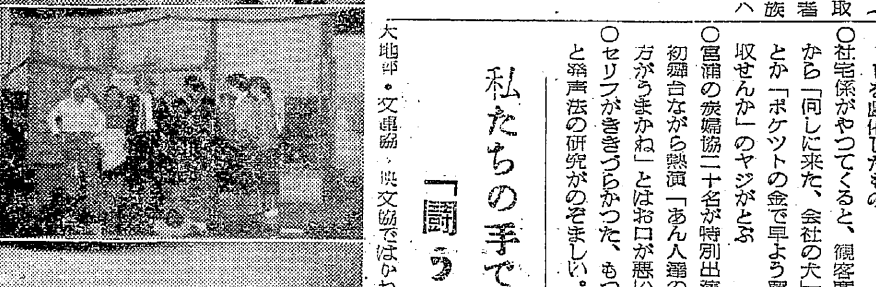 取
者
族
へ
○社宅係がやつてくると、観客
から「何しに来た、会社の犬」
とか「ポケツトの金で早よう
収せんか」のヤジがとぶ
○宮浦の炭婦協二十名が特別出演
初舞台ながら熱演「あん人達の
方がうまかね」とはお口が悪い
○セリフがききづらかつた、もつ
と発声法の研究がのぞましい。
私たちの手で
「闘う
大地部・文連協・映文協ではかね